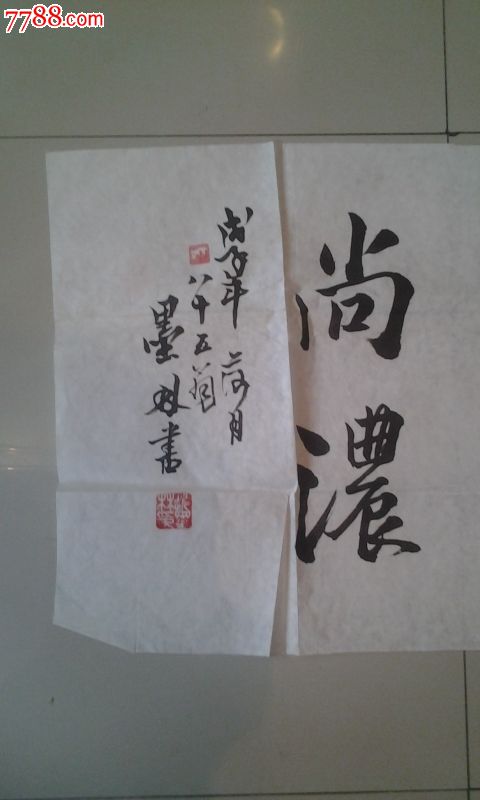 7788.com
尚濃
戊子年荷月
八十五翁
墨林書